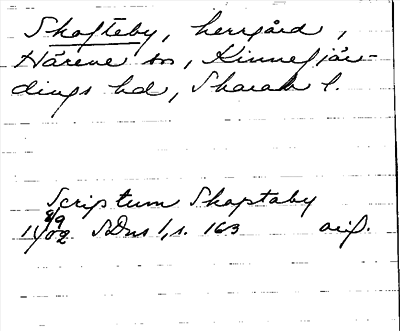 Skofteby, herrgård,
Härene sn, Kinnefjär-
dings hd, Skarab l.
Scriptum Skaptaby
8/9 1402 SDns 1, s. 163 orig.